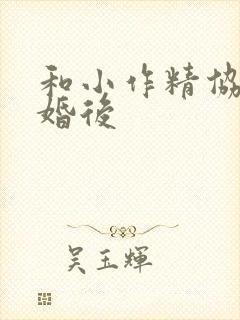 和小作精協
婚後
吴玉輝